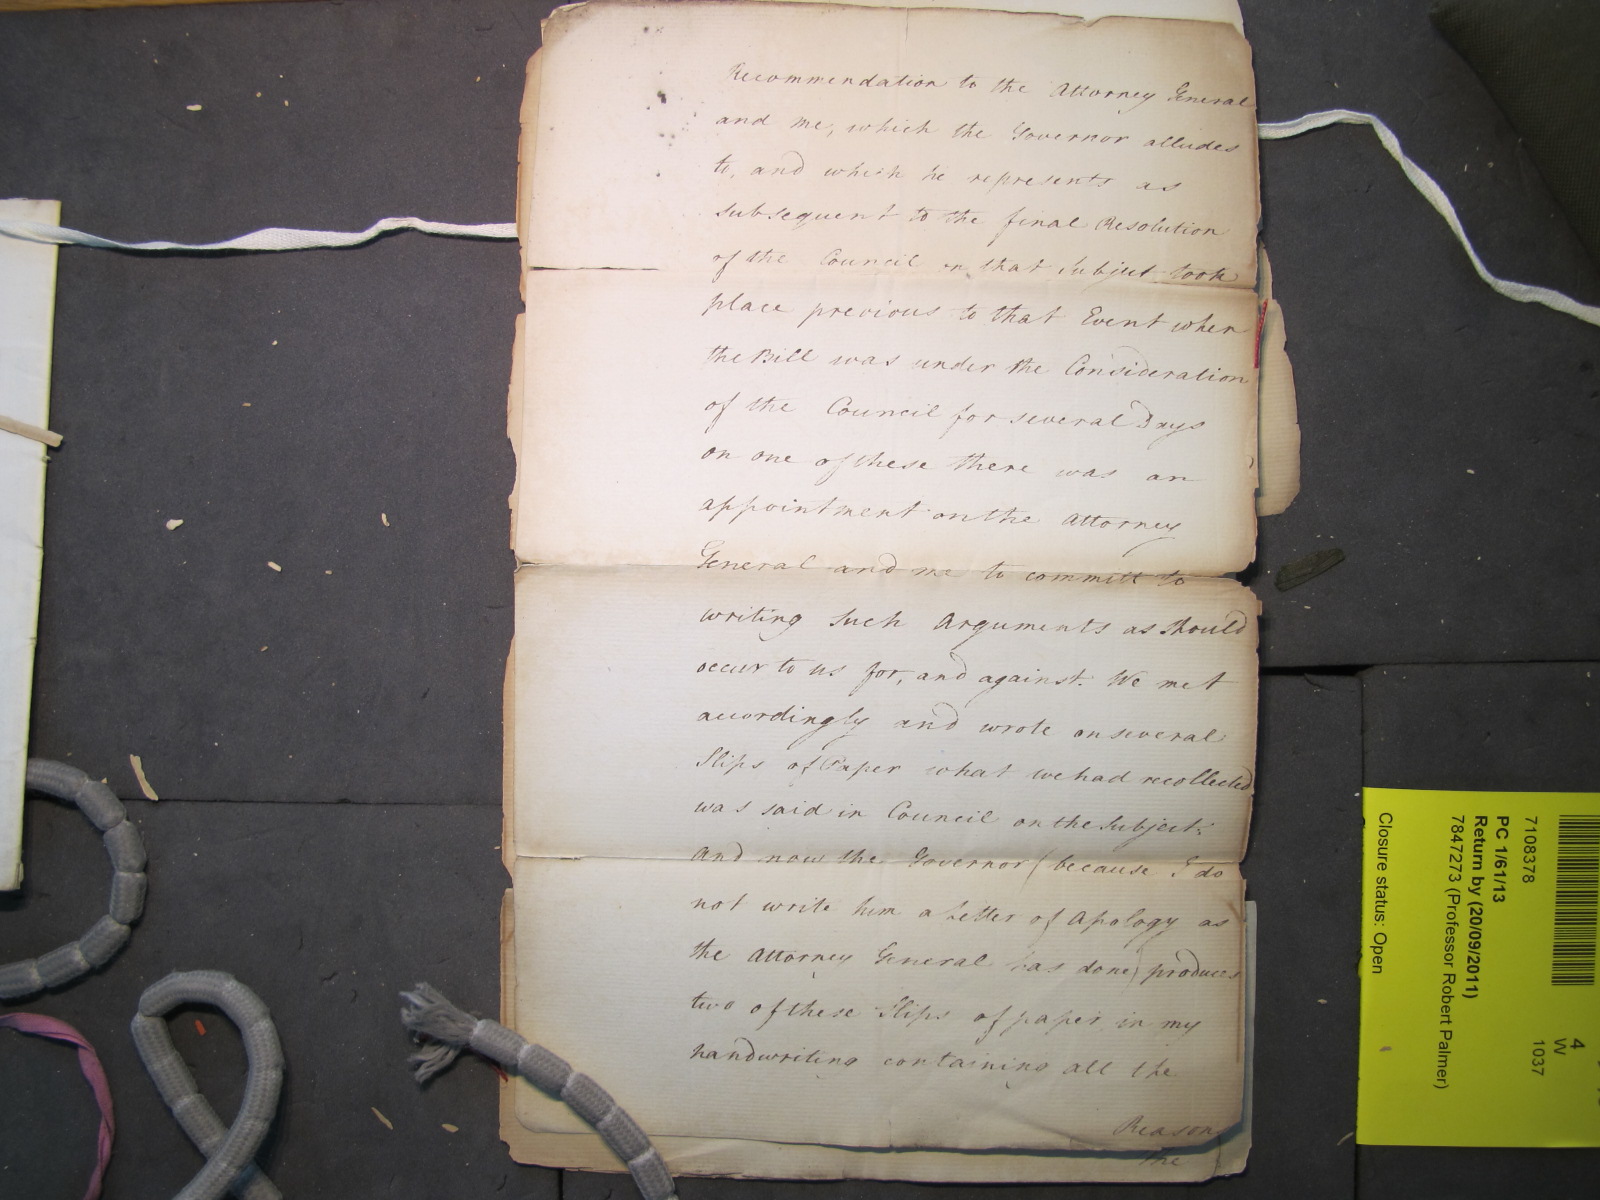 Recommendation to the Attorney General
and me, which the Governor alludes
to, and which he represents as
subsequent to the final Resolution
of the Council on that Subject took
place previous to that Event when
the Bill was under the Consideration
of the Council for several Days
on one of these there was an
appointment on the Attorney
General and me to committ to
writing such Arguments as should
occur to us for, and against. We met
accordingly and wrote on several
Slips of Paper what we had recollected
was said in Council on the Subject.
And now the Governor (because I do
not write him a Letter of Apology as
the Attorney General has done) produces
two of these Slips of paper in my
handwriting containing all the
Reason
the
7108378
PC 1/61/13
Return by (20/09/2011)
7847273 (Professor Robert Palmer)
Closure status: Open
4
W
1037